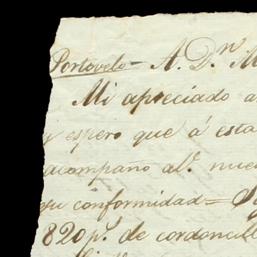 Portovelo – A. Dn. M
Mi apreciado a
y espero que á esta
acompaño al. nue
su conformidad =
820 ps. de cordoncill